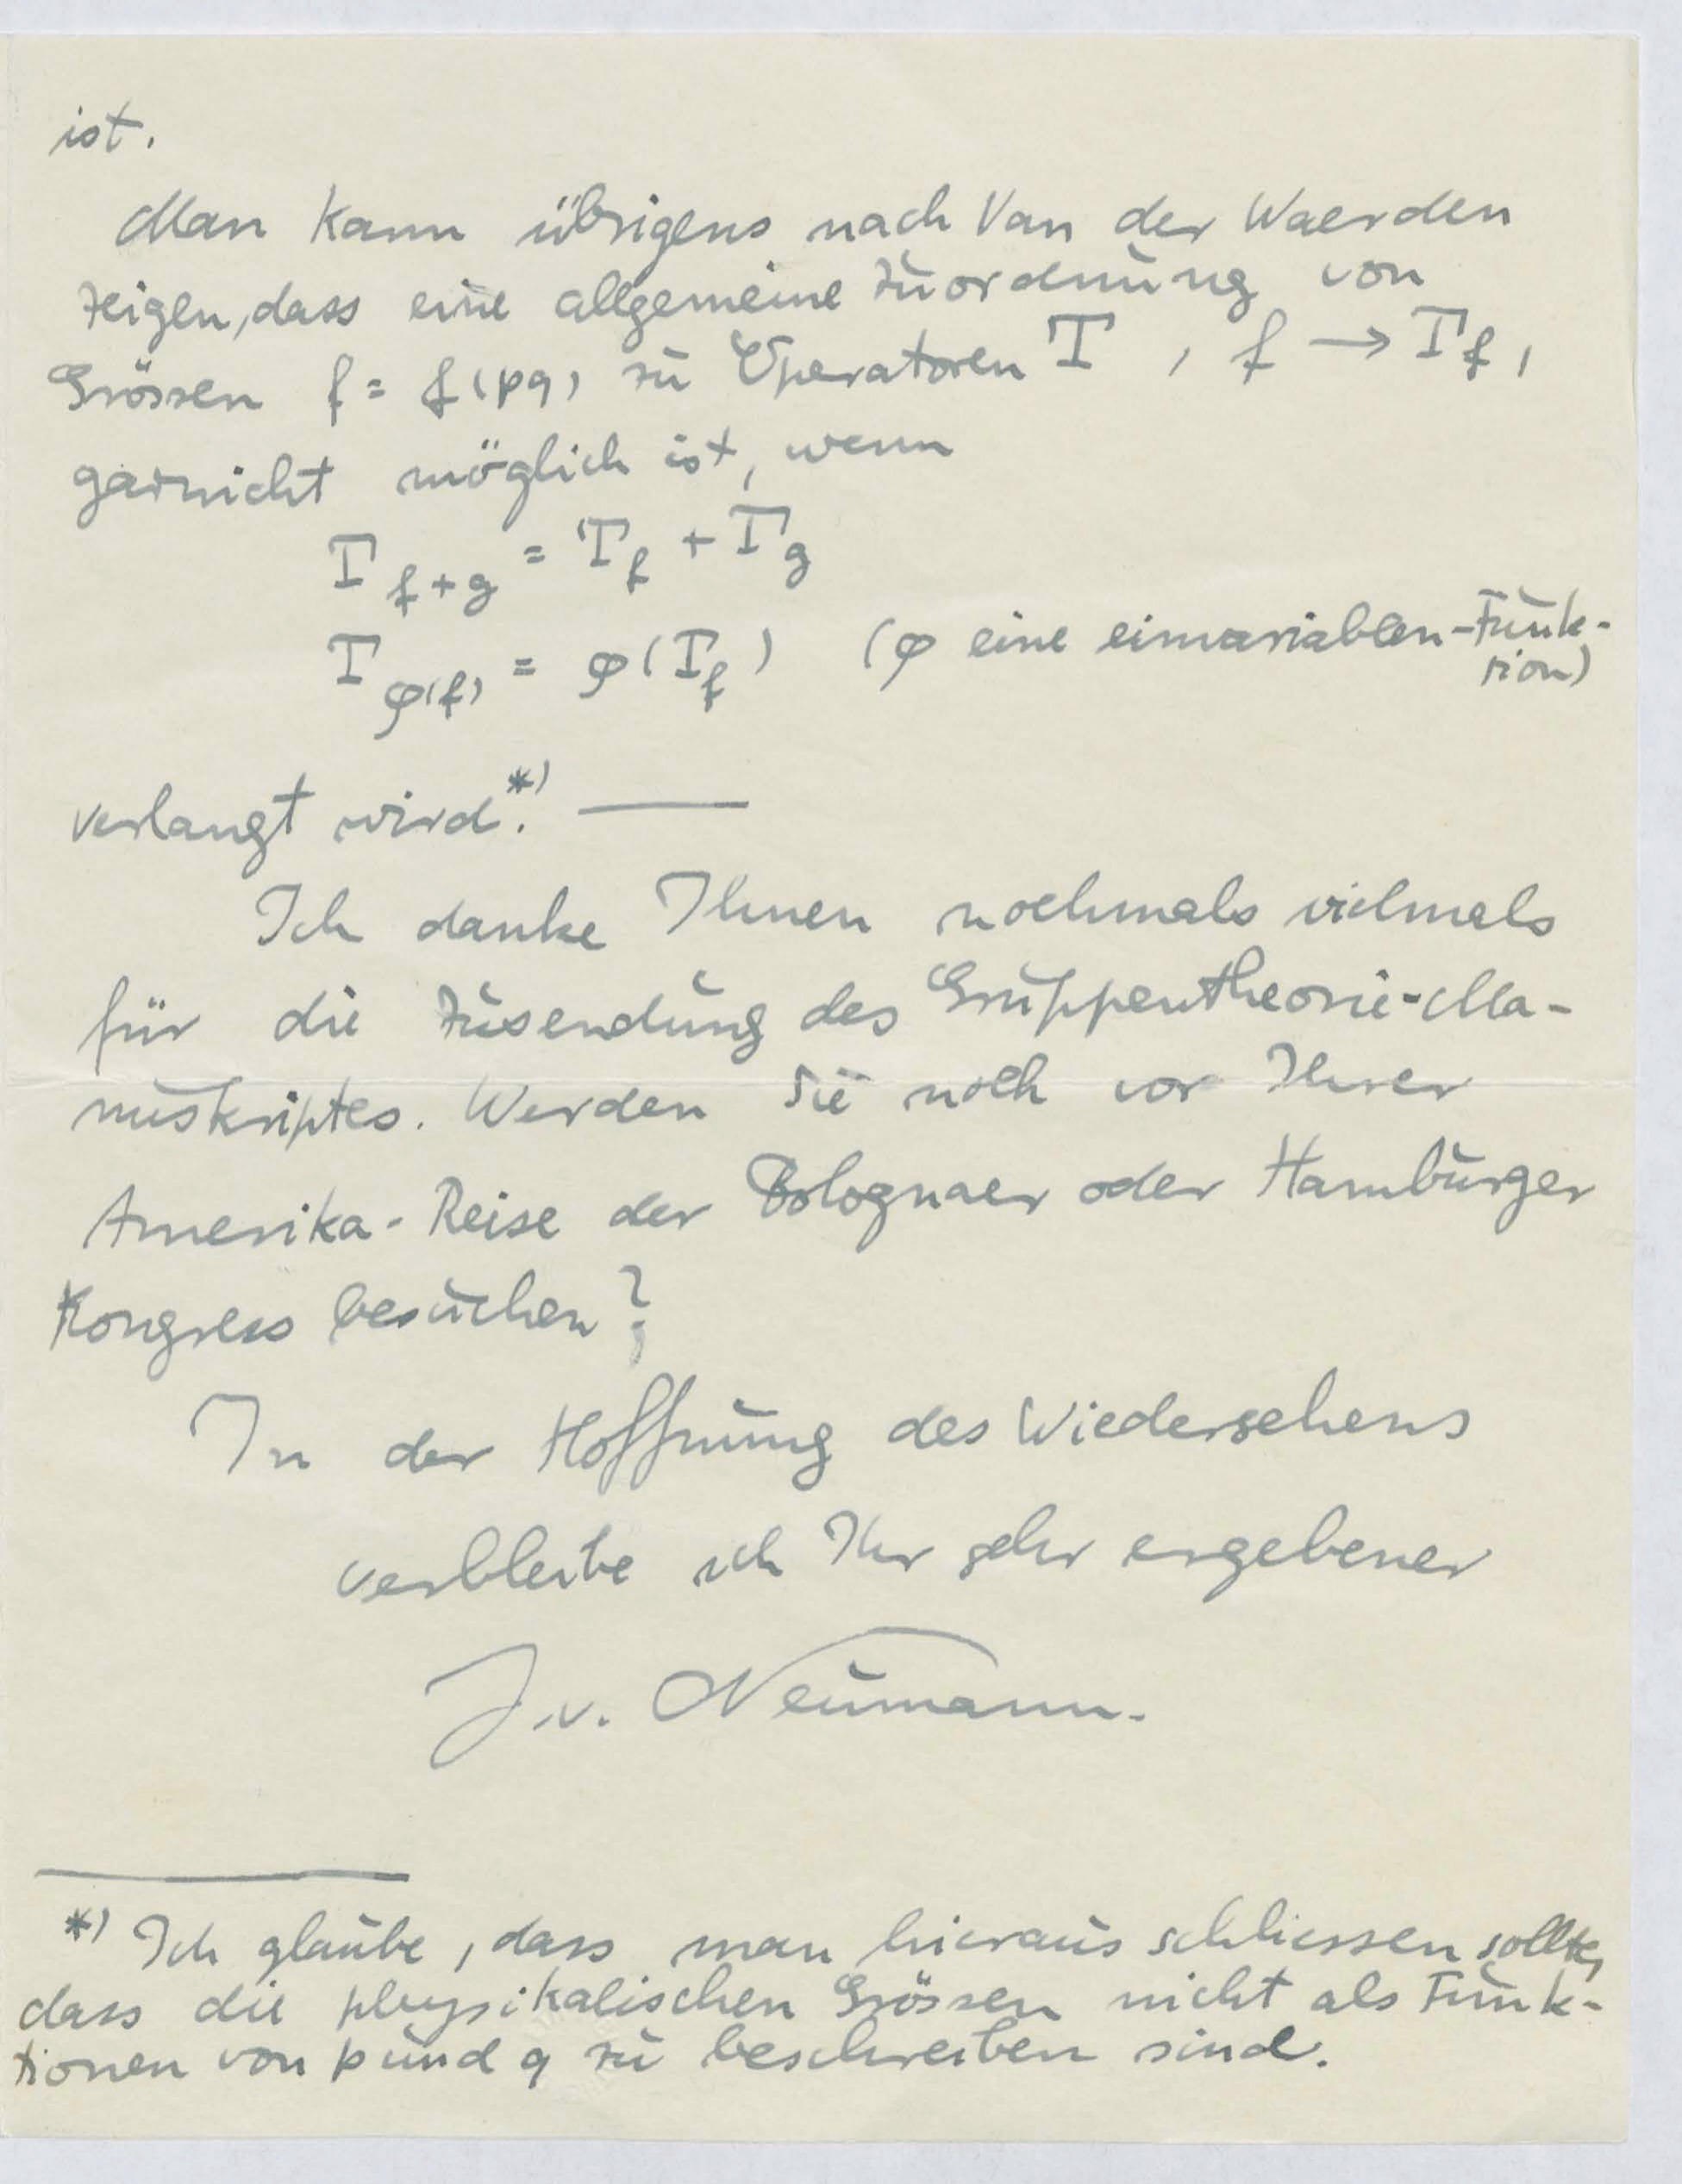 ist.
Man kann übrigens nach Van der Waerden
zeigen, dass eine allgemeine Zuordnung von
Grössen f = f(pq) zu Operatoren T , f → T_f ,
garnicht möglich ist, wenn
T_{f+g} = T_f + T_g
T_{φ(f)} = φ(T_f) (φ eine einvariablen-Funk-
tion)
verlangt wird.*) —
Ich danke Ihnen nochmals vielmals
für die Zusendung des Gruppentheorie-Ma-
nuskriptes. Werden Sie noch vor Ihrer
Amerika-Reise der Bolognaer oder Hamburger
Kongress besuchen?
In der Hoffnung des Wiedersehens
verbleibe ich Ihr sehr ergebener
J. v. Neumann.
*) Ich glaube, dass man hieraus schliessen sollte,
dass die physikalischen Grössen nicht als Funk-
tionen von p und q zu beschreiben sind.